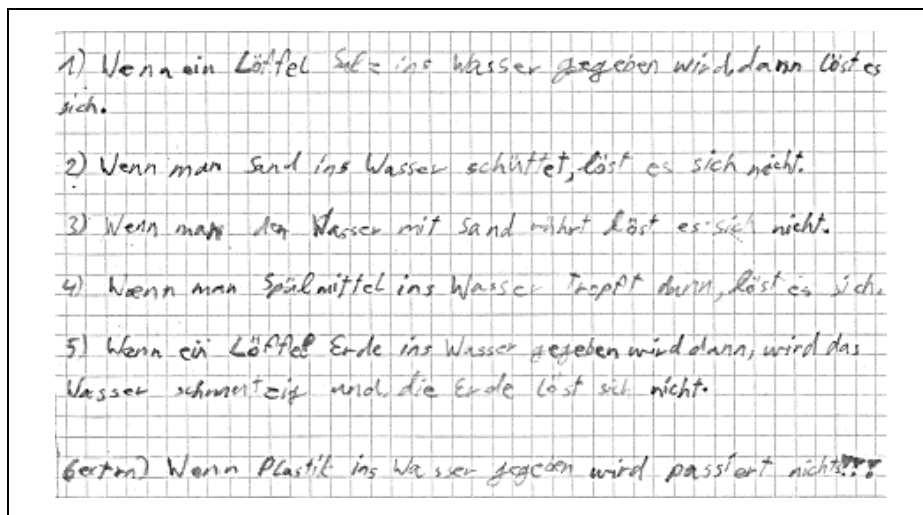 1) Wenn ein Löffel Salz ins Wasser gegeben wird, dann löst es
sich.
2) Wenn man Sand ins Wasser schüttet, löst es sich nicht.
3) Wenn man den Wasser mit Sand rührt löst es sich nicht.
4) Wenn man Spülmittel ins Wasser Tropft dann, löst es sich.
5) Wenn ein Löffel Erde ins Wasser gegeben wird dann, wird das
Wasser schmutzig und die Erde löst sich nicht.
6extra) Wenn Plastik ins Wasser gegeben wird passiert nichts!!!